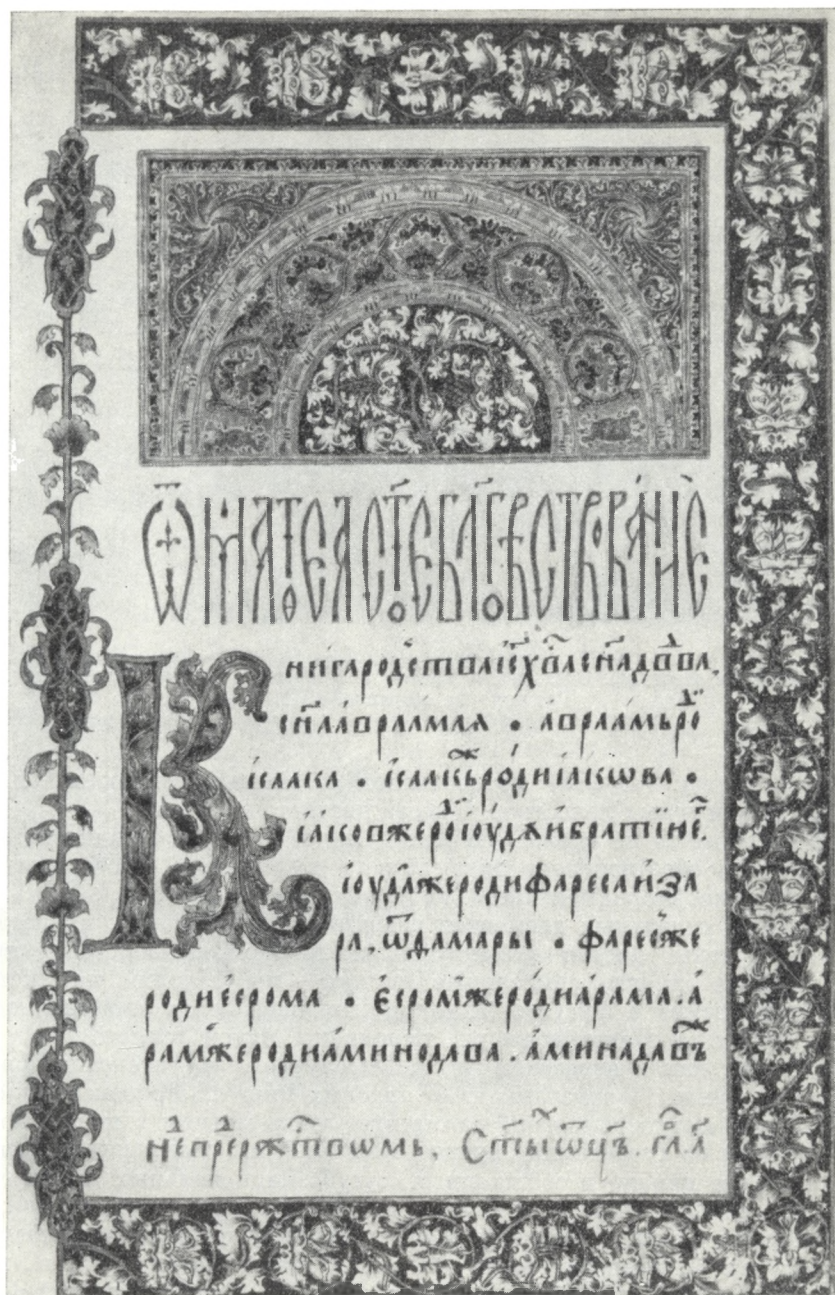 Ѿ мⷶ҇ѳеа ст҃ое бл҃говѣствованїе
Книга родсⷭ҇тва і҆с҃ х҃ва сн҃а дв҃два,
сн҃а а҆враамлѧ • а҆враамъ роⷣ
і҆саака • і҆саакⸯже роди і҆акѡва •
і҆аковже роⷣ і҆оуду и҆ братїю є҆гⷪ҇.
і҆оуда же роди фареса и҆ за
ра, ѿ дамары • фаресже
роди е҆срома • є҆сромже роди а҆рама. а҆
рамже роди а҆минодава. а҆минадавъⷤ
неⷣ преⷣ ржⷭ҇твѡмь. ст҃ыⷯ ѡц҃ъ. гл҃. а҃